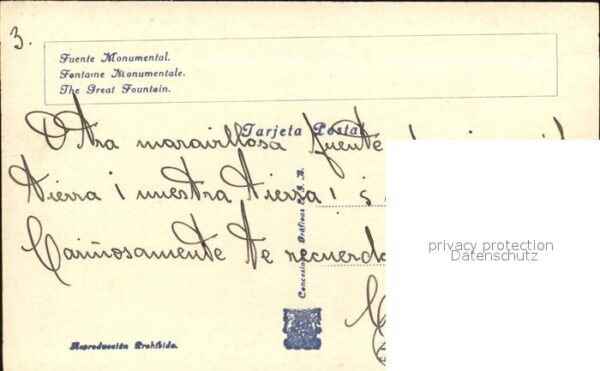 3.
Fuente Monumental.
Fontaine Monumentale.
The Great Fountain.
Tarjeta Postal
Otra maravillosa fuente
tierra ¡ nuestra tierra!
Cariñosamente te recuerda
privacy protection
Datenschutz
Reproducción Prohibida.